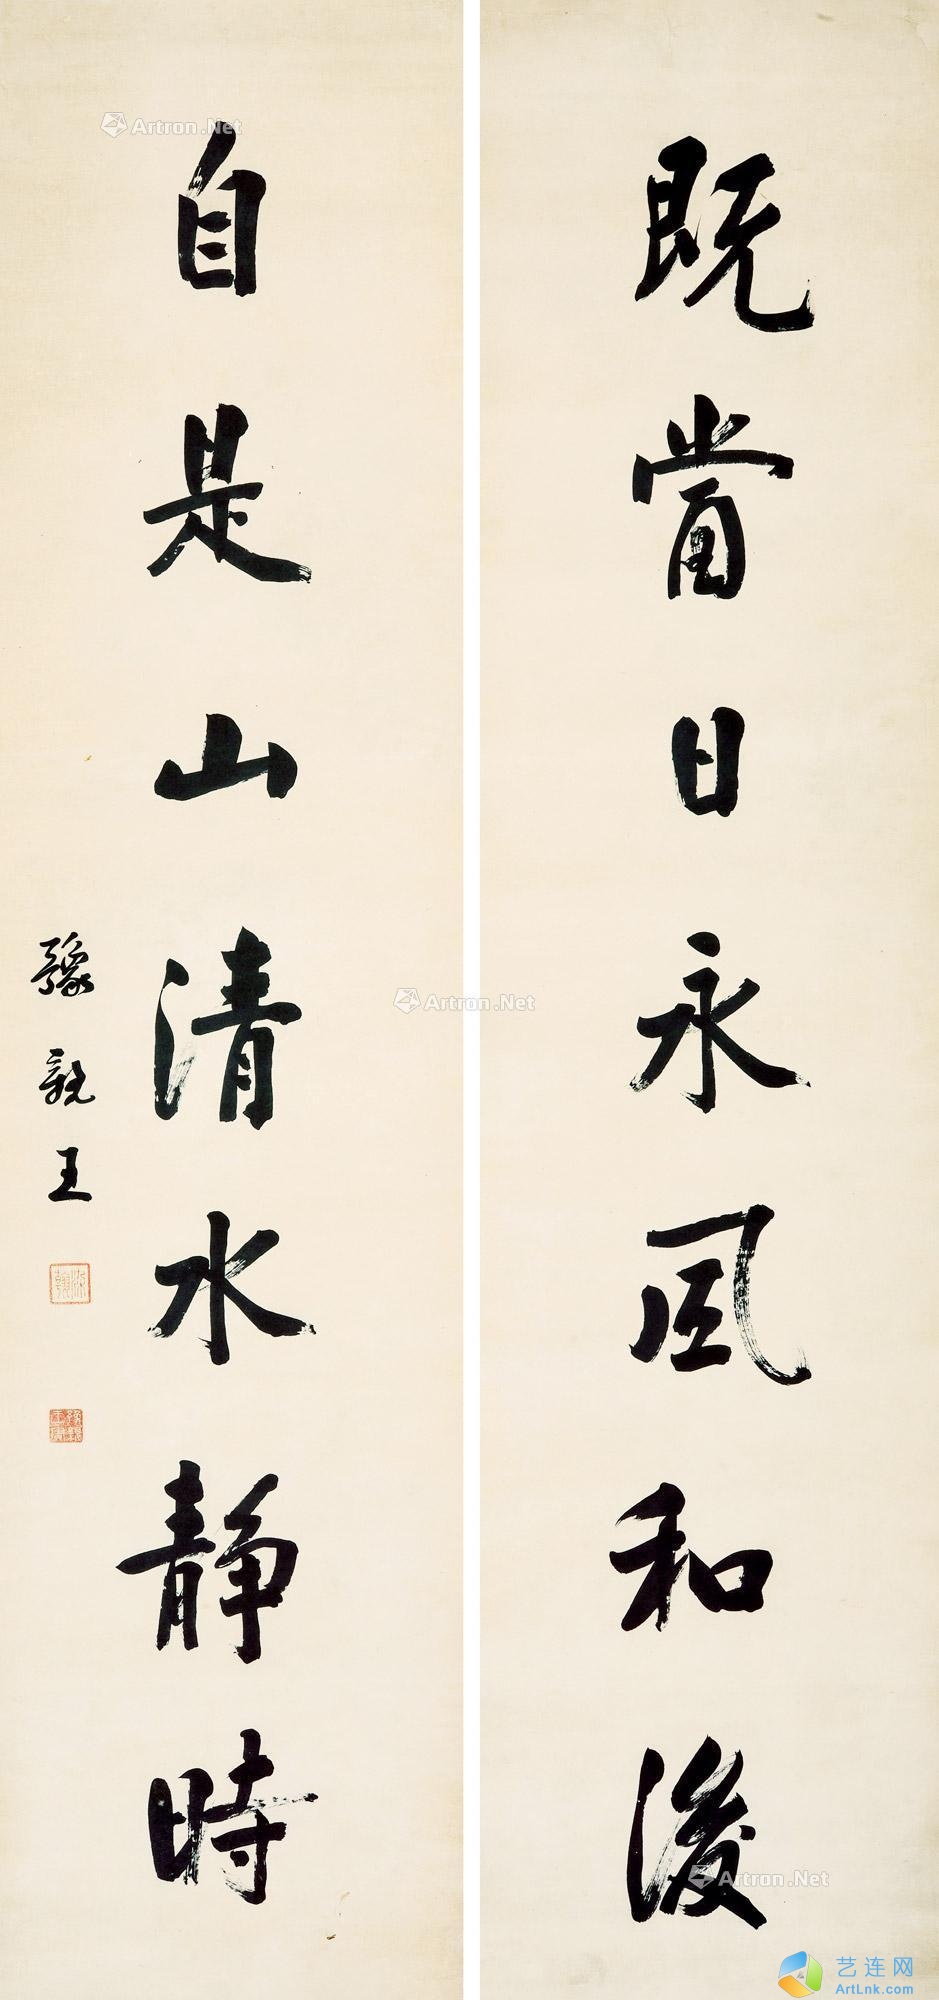 既當日永風和後
自是山清水靜時
豫親王
Artron.Net
Artron.Net
Artron.Net
艺连网
ArtLnk.com